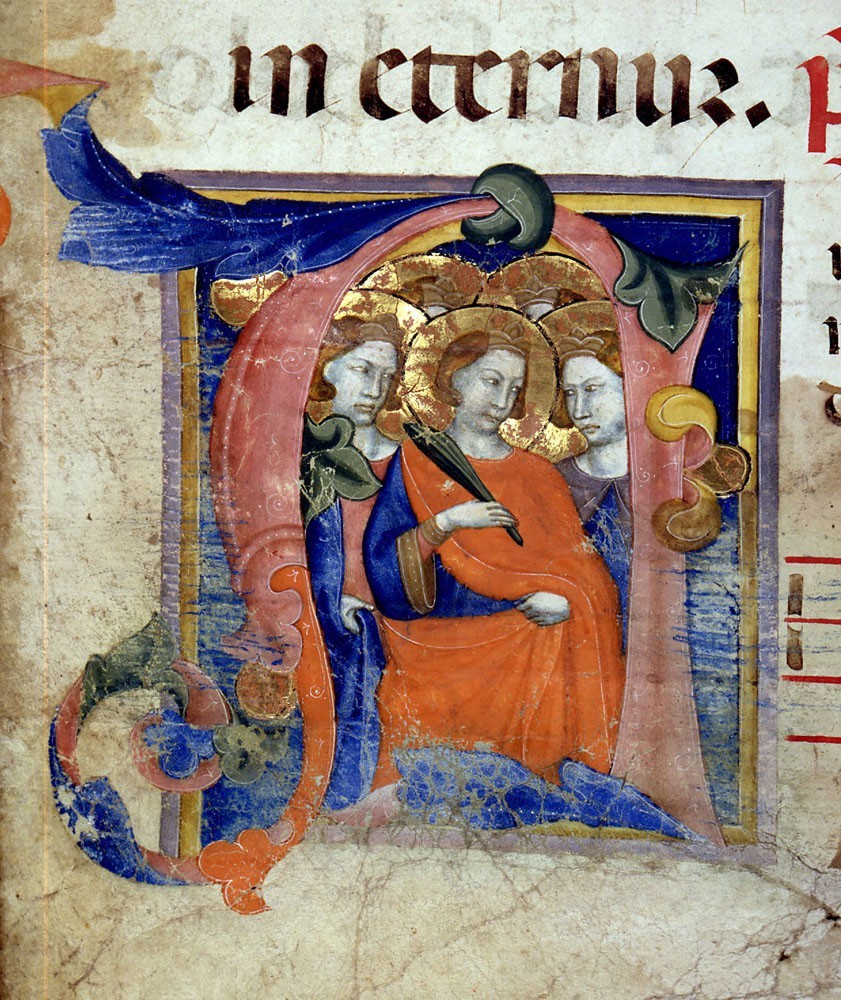 in eternuz.
A